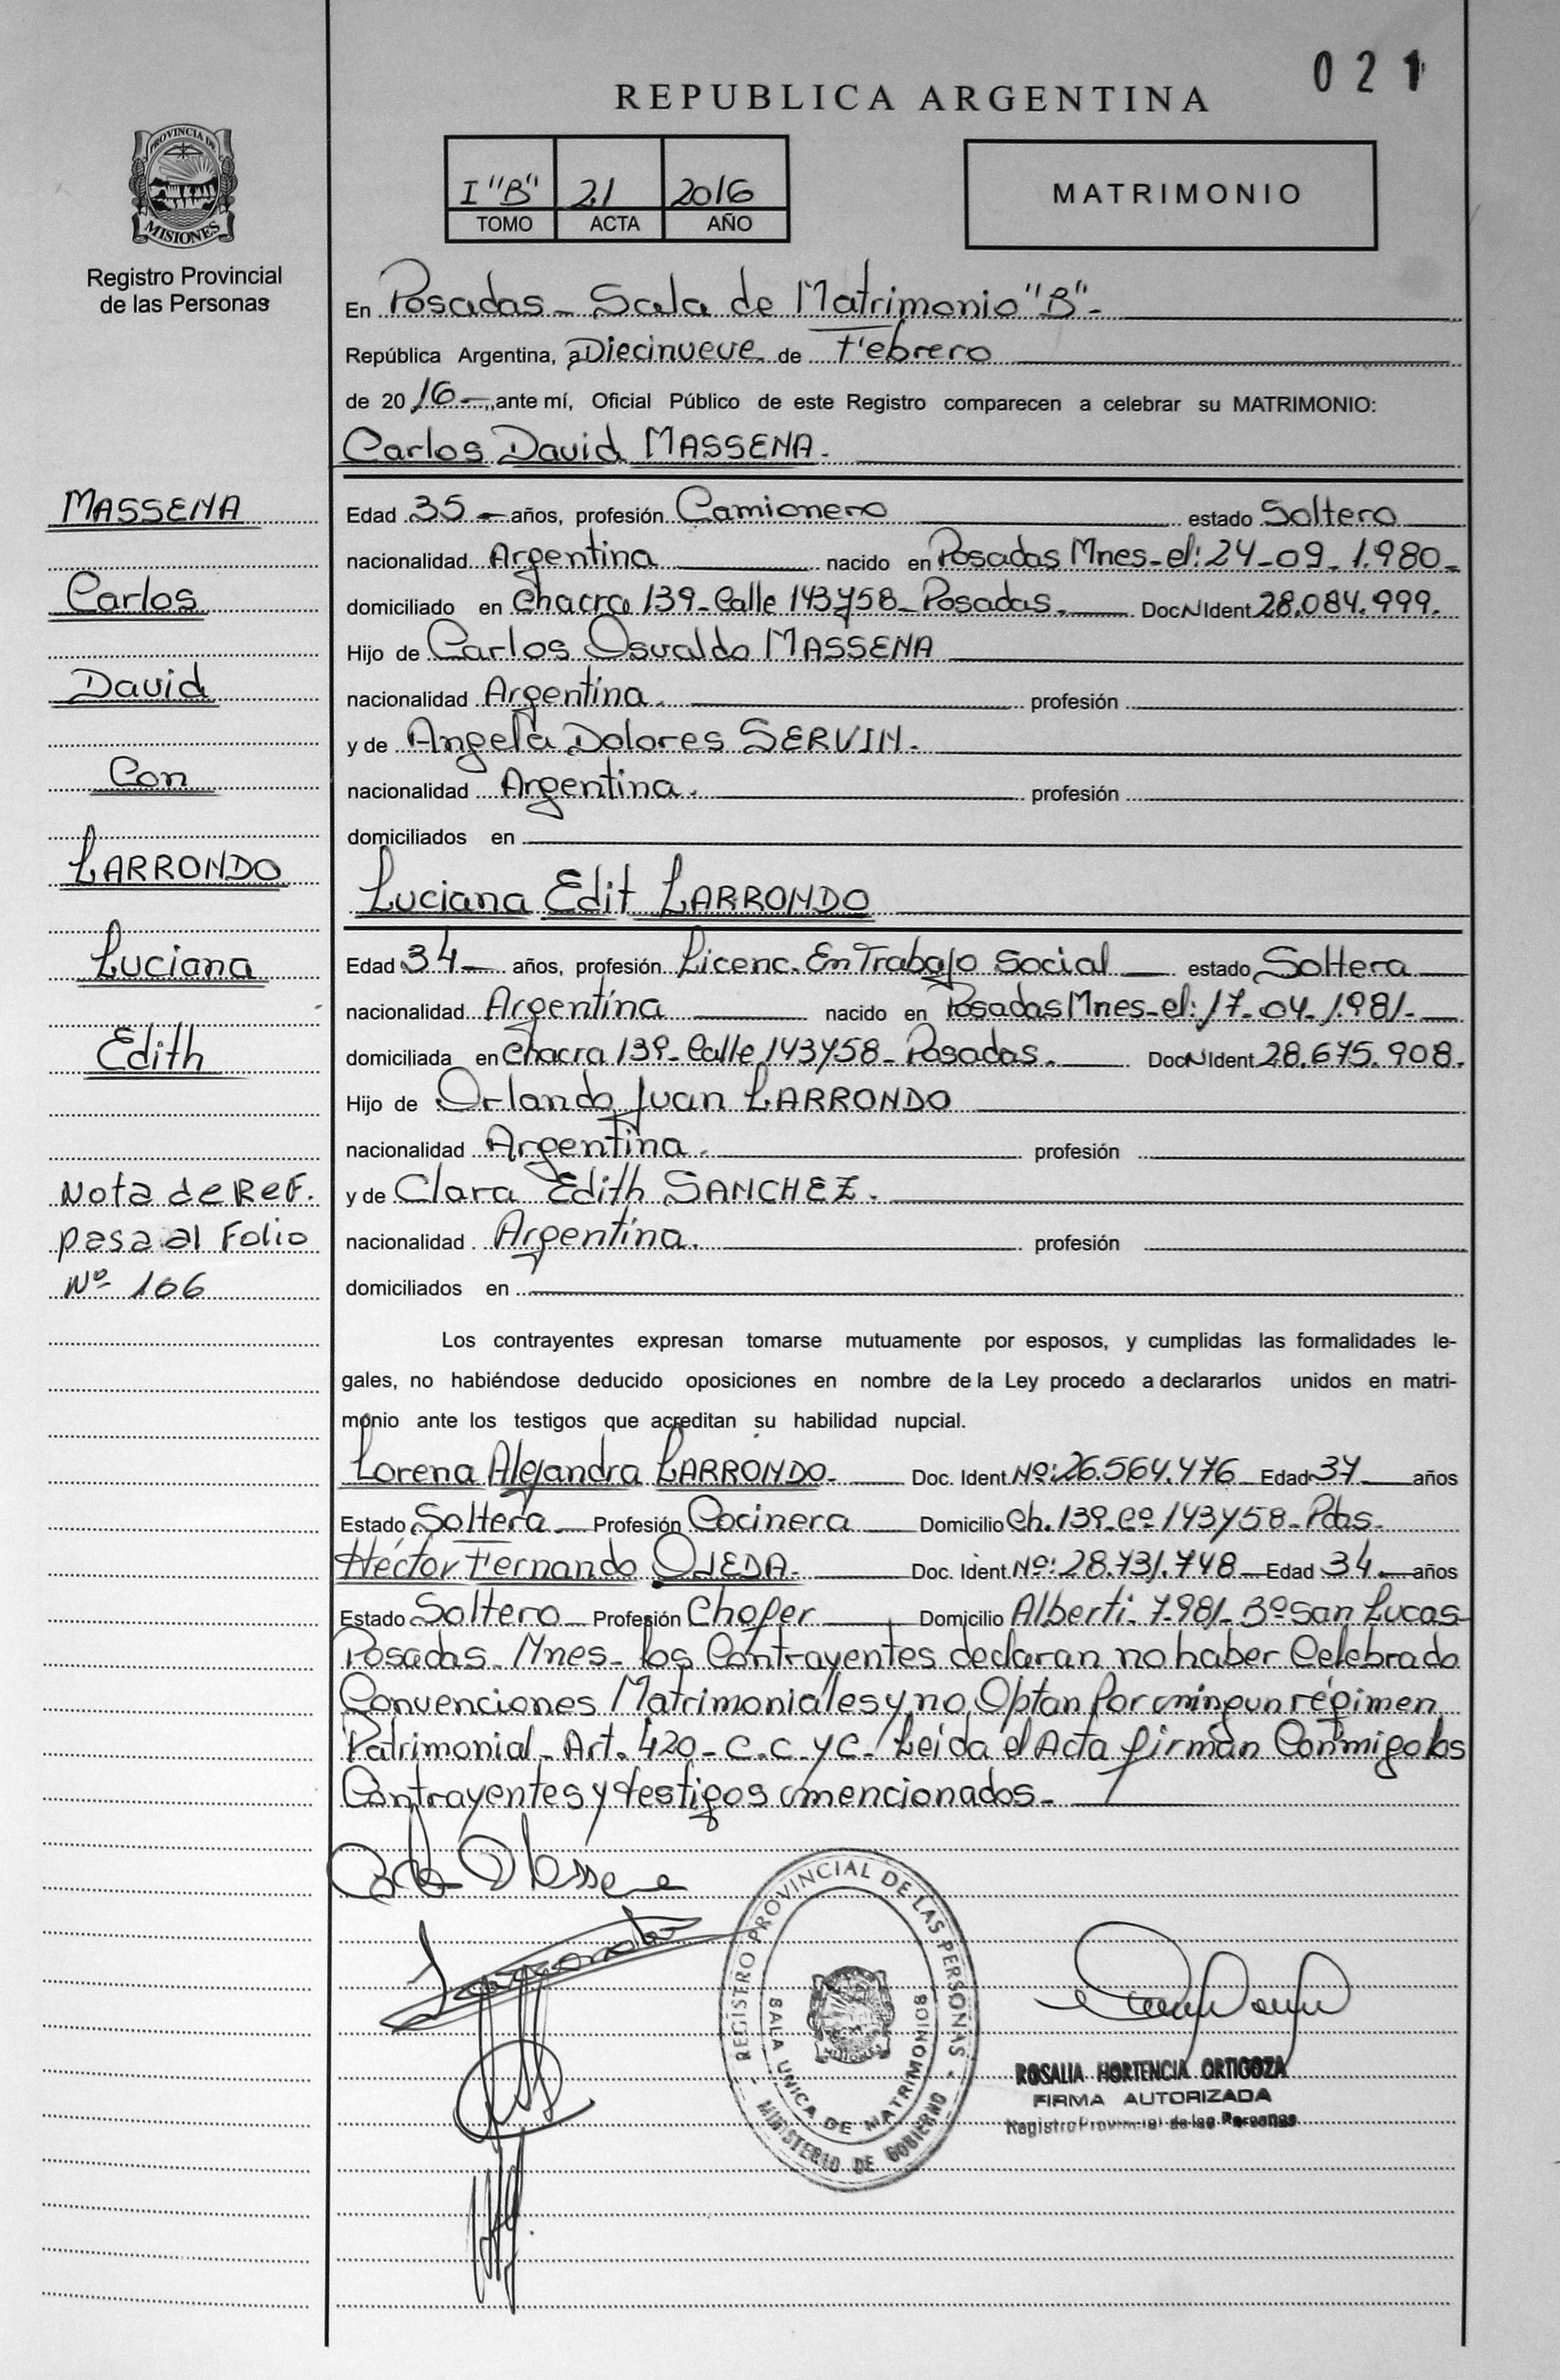 021
REPUBLICA ARGENTINA
PROVINCIA DE
MISIONES
Registro Provincial
de las Personas
I "B" 21 2016
TOMO ACTA AÑO
MATRIMONIO
En Posadas - Sala de Matrimonio "B"-
República Argentina, a Diecinueve de Febrero
de 2016-, ante mí, Oficial Público de este Registro comparecen a celebrar su MATRIMONIO:
Carlos David MASSENA.
MASSENA
Carlos
David
Con
LARRONDO
Luciana
Edith
Nota de Ref.
pasa al Folio
Nº 106
Edad 35- años, profesión Camionero estado Soltero
nacionalidad Argentina nacido en Posadas Mnes-el: 24-09-1.980-
domiciliado en Chacra 139-Calle 143y58-Posadas. Doc N Ident 28.084.999.
Hijo de Carlos Osvaldo MASSENA
nacionalidad Argentina. profesión
y de Angela Dolores SERVIN.
nacionalidad Argentina. profesión
domiciliados en
Luciana Edit LARRONDO
Edad 34- años, profesión Licenc. En Trabajo Social estado Soltera
nacionalidad Argentina nacido en Posadas Mnes-el: 17-04-1.981-
domiciliada en Chacra 139-Calle 143y58-Posadas. Doc N Ident 28.675.908.
Hijo de Orlando Juan LARRONDO
nacionalidad Argentina. profesión
y de Clara Edith SANCHEZ.
nacionalidad Argentina. profesión
domiciliados en
Los contrayentes expresan tomarse mutuamente por esposos, y cumplidas las formalidades le-
gales, no habiéndose deducido oposiciones en nombre de la Ley procedo a declararlos unidos en matri-
monio ante los testigos que acreditan su habilidad nupcial.
Lorena Alejandra LARRONDO- Doc. Ident Nº: 26.564.476 Edad 37 años
Estado Soltera Profesión Cocinera Domicilio Ch. 139-Cº 143y58-Pdas.
Héctor Fernando OJEDA. Doc. Ident Nº: 28.731.748 Edad 34 años
Estado Soltero Profesión Chofer Domicilio Alberti-7.981-Bº San Lucas
Posadas-Mnes-los Contrayentes declaran no haber Celebrado
Convenciones Matrimoniales y no Optan Por ningun régimen
Patrimonial-Art. 420-C.C.yC-Leida el Acta firman Conmigo los
Contrayentes y testigos mencionados-
Massena
REGISTRO PROVINCIAL DE LAS PERSONAS
SALA UNICA DE MATRIMONIOS
MINISTERIO DE GOBIERNO
ROSALIA HORTENCIA ORTIGOZA
FIRMA AUTORIZADA
Registro Provincial de las Personas